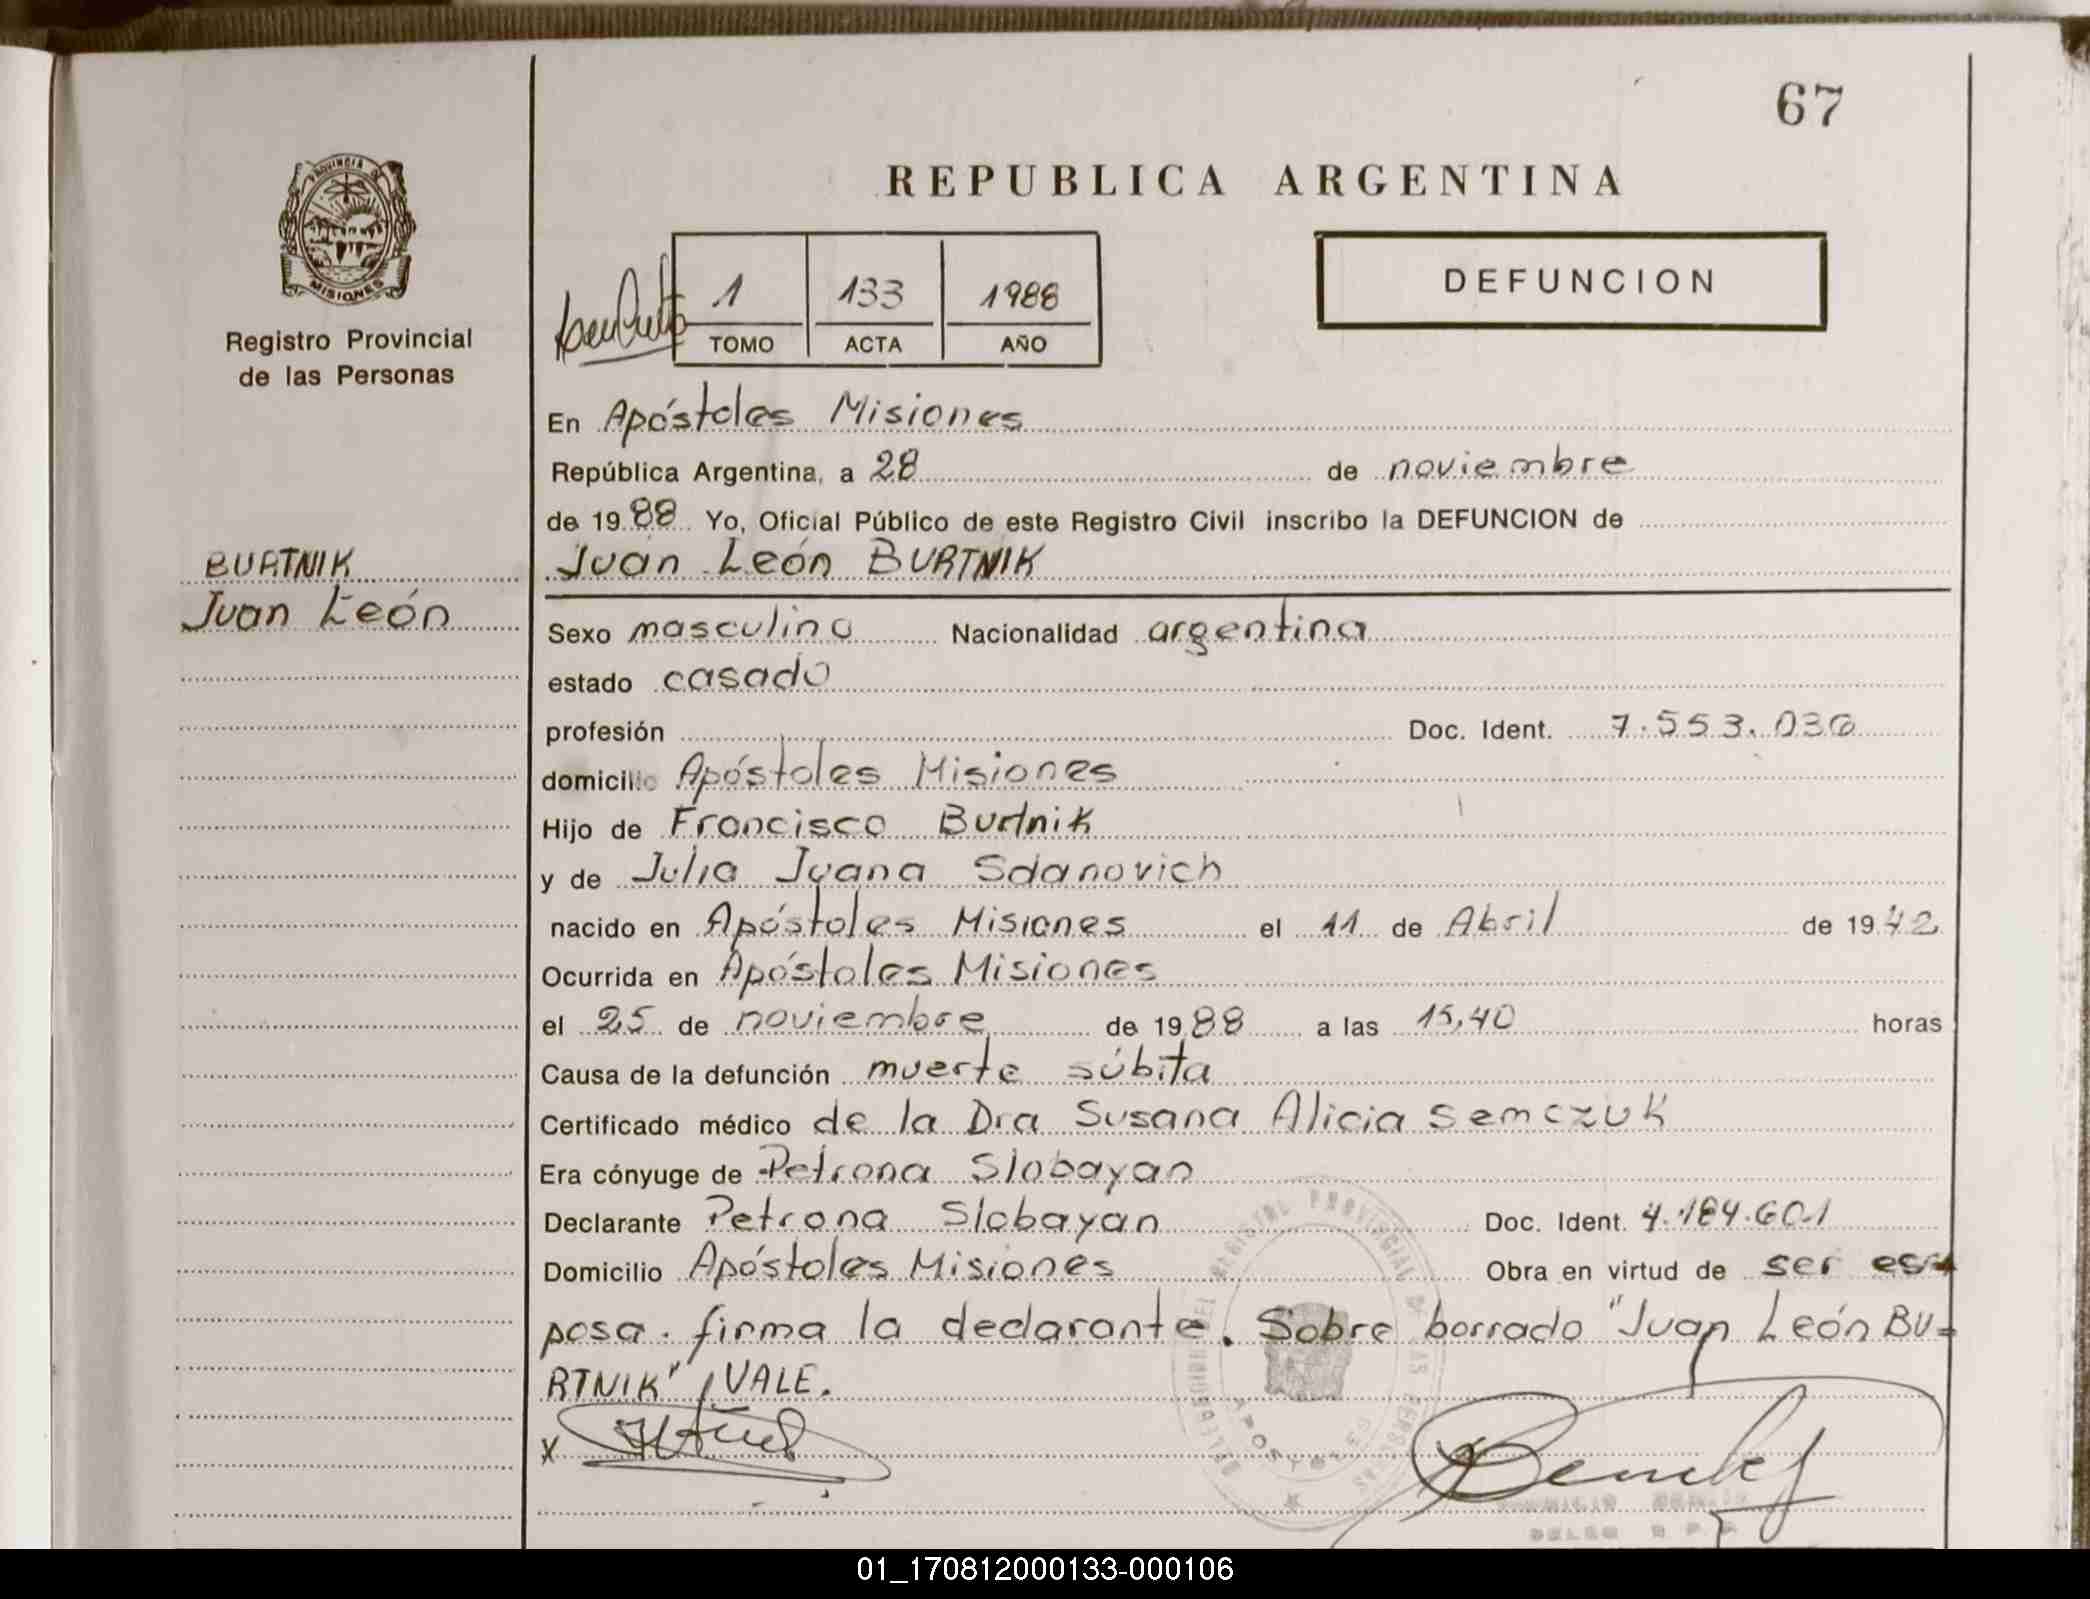 67
REPUBLICA ARGENTINA
PROVINCIA DE
MISIONES
Registro Provincial
de las Personas
1 133 1988
TOMO ACTA AÑO
DEFUNCION
En Apóstoles Misiones
República Argentina, a 28 de noviembre
de 1988 Yo, Oficial Público de este Registro Civil inscribo la DEFUNCION de
BURTNIK
Juan León
Juan León BURTNIK
Sexo masculino Nacionalidad argentina
estado casado
profesión Doc. Ident. 7.553.036
domicilio Apóstoles Misiones
Hijo de Francisco Burtnik
y de Julia Juana Sdanovich
nacido en Apóstoles Misiones el 11 de Abril de 1942
Ocurrida en Apóstoles Misiones
el 25 de noviembre de 1988 a las 15,40 horas
Causa de la defunción muerte súbita
Certificado médico de la Dra Susana Alicia Semczuk
Era cónyuge de Petrona Slobayan
Declarante Petrona Slobayan Doc. Ident. 4.184.601
Domicilio Apóstoles Misiones Obra en virtud de ser es-
posa. firma la declarante. Sobre borrado "Juan León BU=
RTNIK", VALE.
X
REGISTRO PROVINCIAL DE LAS PERSONAS
APOSTOLES
01_170812000133-000106